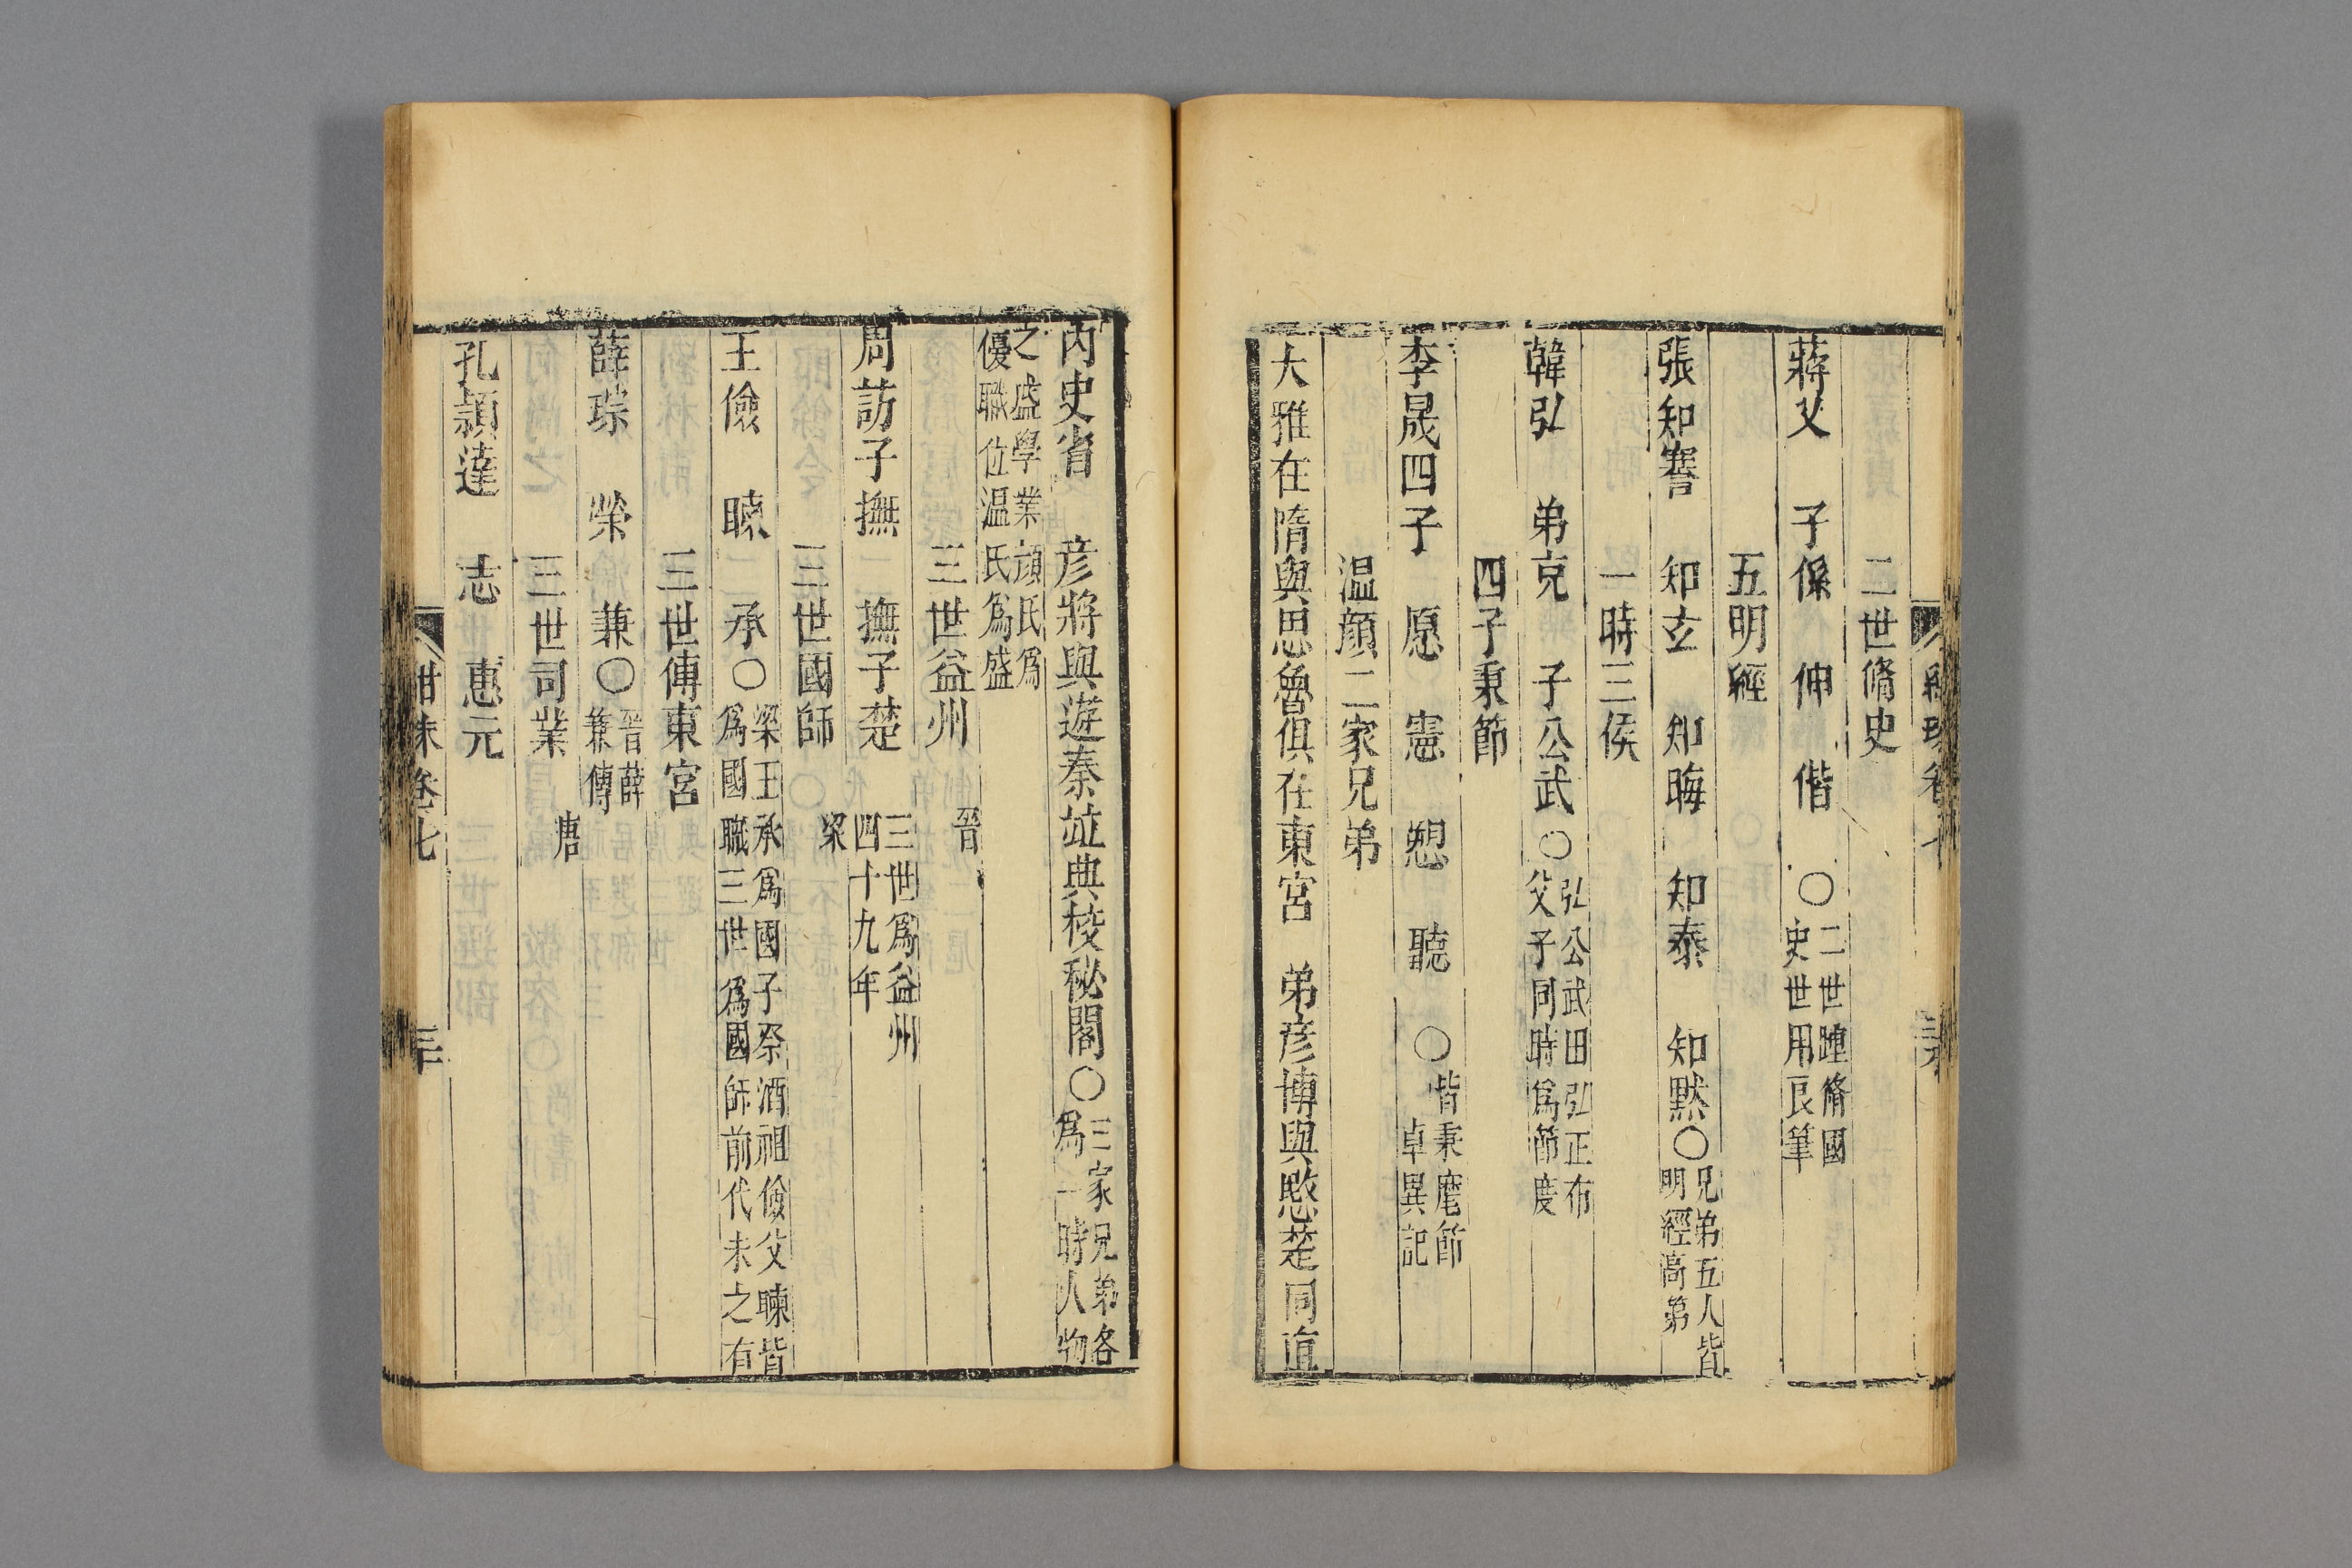 二世脩史
蔣乂　子係　伸　偕　○二世踵脩國史世用良筆
五明經
張知謇　知玄　知晦　知泰　知默○兄弟五人皆明經高第
一時三侯
韓弘　弟克　子公武○弘公武田弘正布父子同時爲節度
四子秉節
李晟四子　愿　憲　愬　聽　○皆秉麾節卓異記
温顔二家兄弟
大雅在隋與思魯俱在東宮　弟彦博與愍楚同直
内史省　彦將與遊秦竝典校秘閣○三家兄弟各爲一時人物
之盛學業顔氏爲優職位温氏爲盛
三世益州　晉
周訪子撫　撫子楚　三世爲益州四十九年
三世國師　梁
王儉　暕　承○梁王承爲國子祭酒祖儉父暕皆爲國職三世爲國師前代未之有
三世傅東宮
薛琮　榮　兼○晉薛兼傳
三世司業　唐
孔頴達　志　惠元
卷七